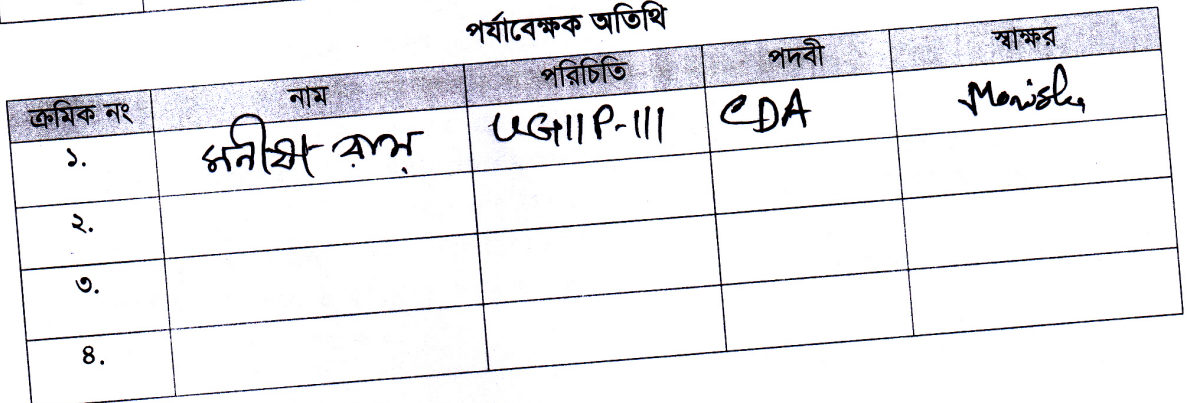 পর্যাবেক্ষক অতিথি
ক্রমিক নং নাম পরিচিতি পদবী স্বাক্ষর
১. মনীষা রায় UGIIP-III CDA Monisha
২.
৩.
৪.